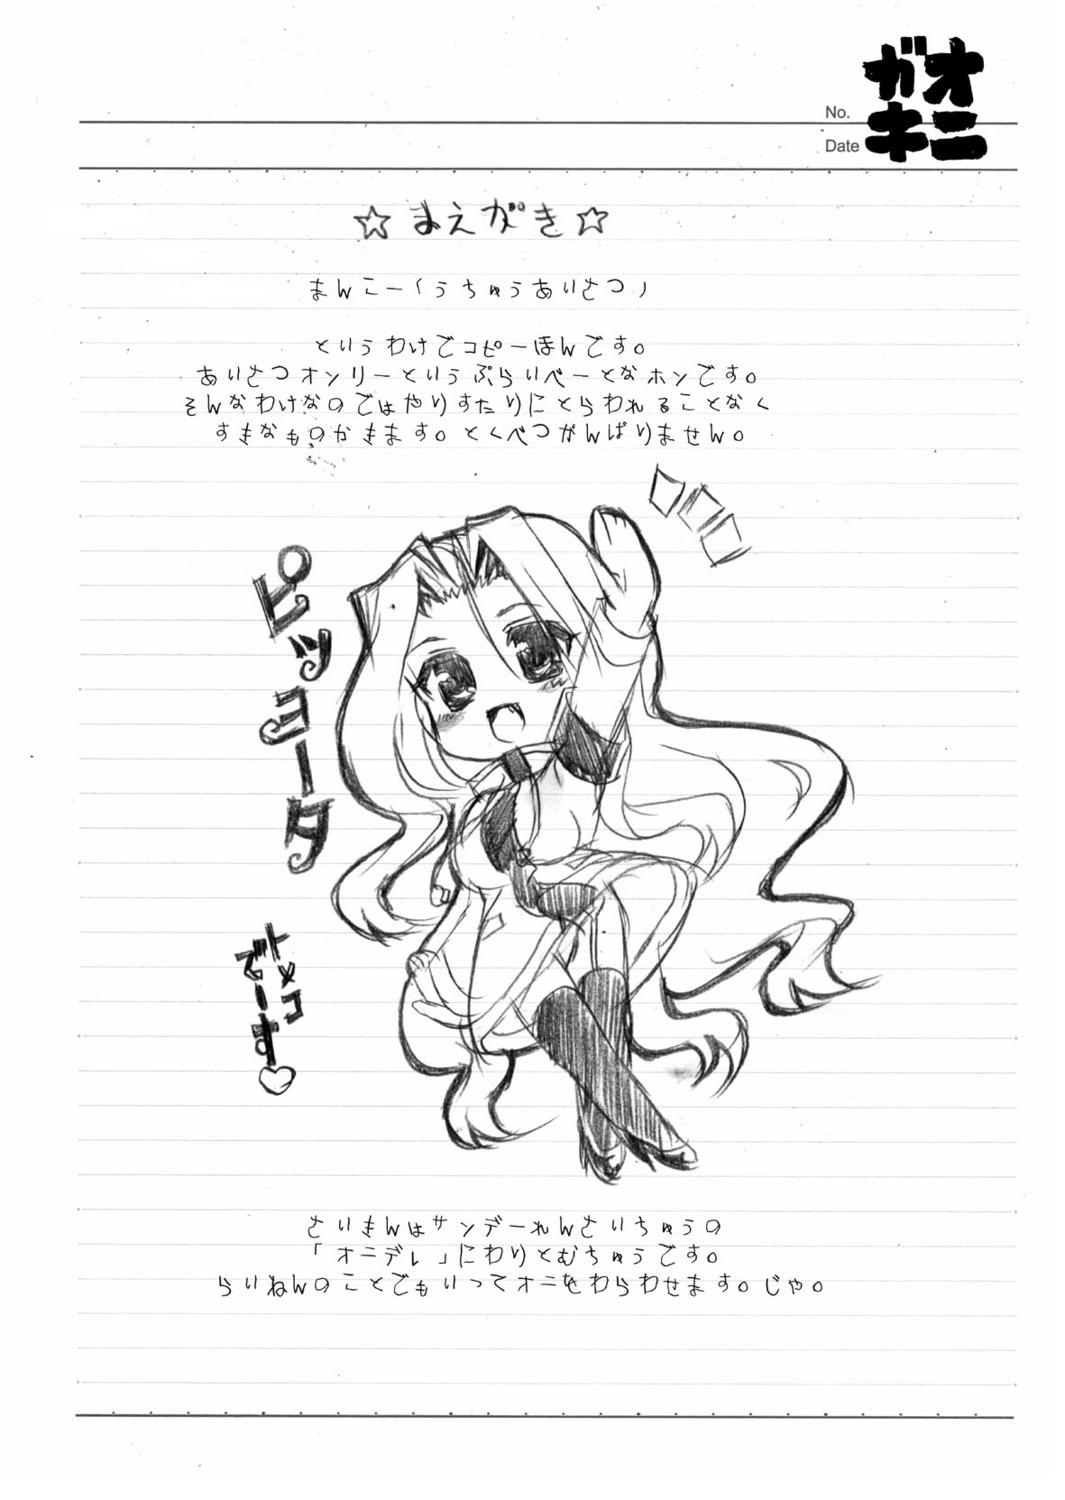 オニ
ガキ
No.
Date
☆まえがき☆
まんこー(うちゅうあいさつ)
というわけでコピーほんです。
あいさつオンリーというぷらいべーとなホンです。
そんなわけなのではやりすたりにとらわれることなく
すきなものかきます。とくべつがんばりません。
ピッコータ
トメコ
でーす♡
さいきんはサンデーれんさいちゅうの
「オニデレ」にわりとむちゅうです。
らいねんのことでもいってオニをわらわせます。じゃ。